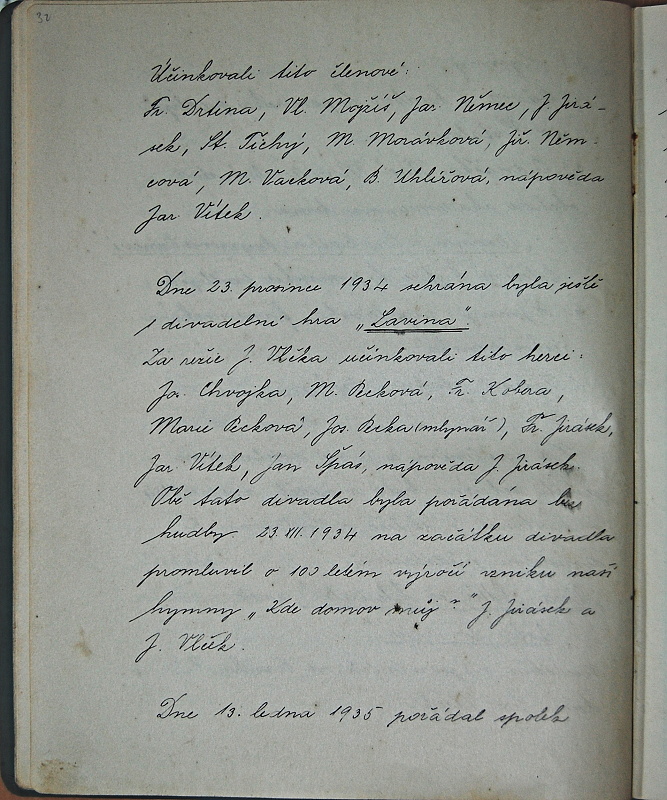 32
Účinkovali tito členové:
Fr. Drtina, Vl. Mojžíš, Jar. Němec, J. Jirá-
sek, St. Tichý, M. Morávková, Jiř. Něm-
cová, M. Vacková, B. Uhlířová, nápověda
Jar. Vítek.
Dne 23. prosince 1934 sehrána byla ještě
1 divadelní hra „Lavina".
Za režie J. Vlčka účinkovali tito herci:
Jos. Chvojka, M. Pecková, Fr. Kobera,
Marie Pecková, Jos. Pecka (mlynář), Fr. Jirásek,
Jar. Vítek, Jan Špás, nápověda J. Jirásek.
Obě tato divadla byla pořádána bez
hudby. 23. XII. 1934 na začátku divadla
promluvil o 100 letém výročí vzniku naší
hymny „Kde domov můj?" J. Jirásek a
J. Vlček.
Dne 13. ledna 1935 pořádal spolek